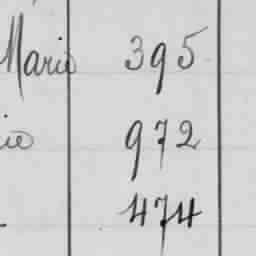 Marie 395
972
474